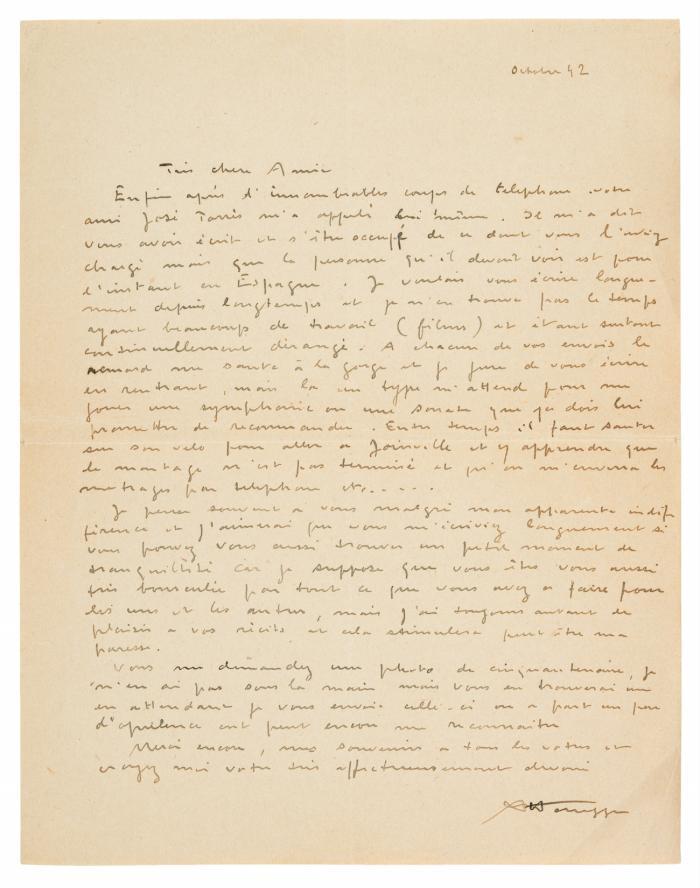 Octobre 42
Très chère Amie
Enfin après d'innombrables coups de telephone votre
ami José Torrès m'a appelé lui même. Il m'a dit
vous avoir écrit et s'être occupé de ce dont vous l'aviez
chargé mais que la personne qu'il devait voir est pour
l'instant en Espagne. Je voulais vous écrire longue-
ment depuis longtemps et je n'en trouve pas le temps
ayant beaucoup de travail (films) et étant surtout
continuellement dérangé. A chacun de vos envois le
remord me saute à la gorge et je jure de vous écrire
en rentrant, mais là un type m'attend pour me
jouer une symphonie ou une sonate que je dois lui
promettre de recommander. Entre temps il faut sauter
sur son velo pour aller a Joinville et y apprendre que
le montage n'est pas terminé et qu'on m'enverra les
métrages par telephone etc.....
Je pense souvent a vous malgré mon apparente indif
férence et j'aimerai que vous m'écriviez longuement si
vous pouvez vous aussi trouver un petit moment de
tranquillité car je suppose que vous êtes vous aussi
très bousculée par tout ce que vous avez a faire pour
les uns et les autres, mais j'ai toujours autant de
plaisir a vos récits et cela stimulera peut être ma
paresse.
Vous me demandez une photo de cinquantenaire, je
n'en ai pas sous la main mais vous en trouverai une
en attendant je vous envoie celle-ci ou a part un peu
d'opulence on peut encore me reconnaitre
Merci encore, mes souvenirs a tous les votres et
croyez moi votre très affectueusement devoué